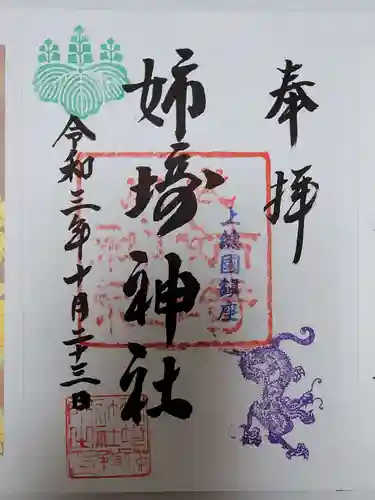 奉拝
上総国鎮座
姉埼神社
令和三年十月二十三日